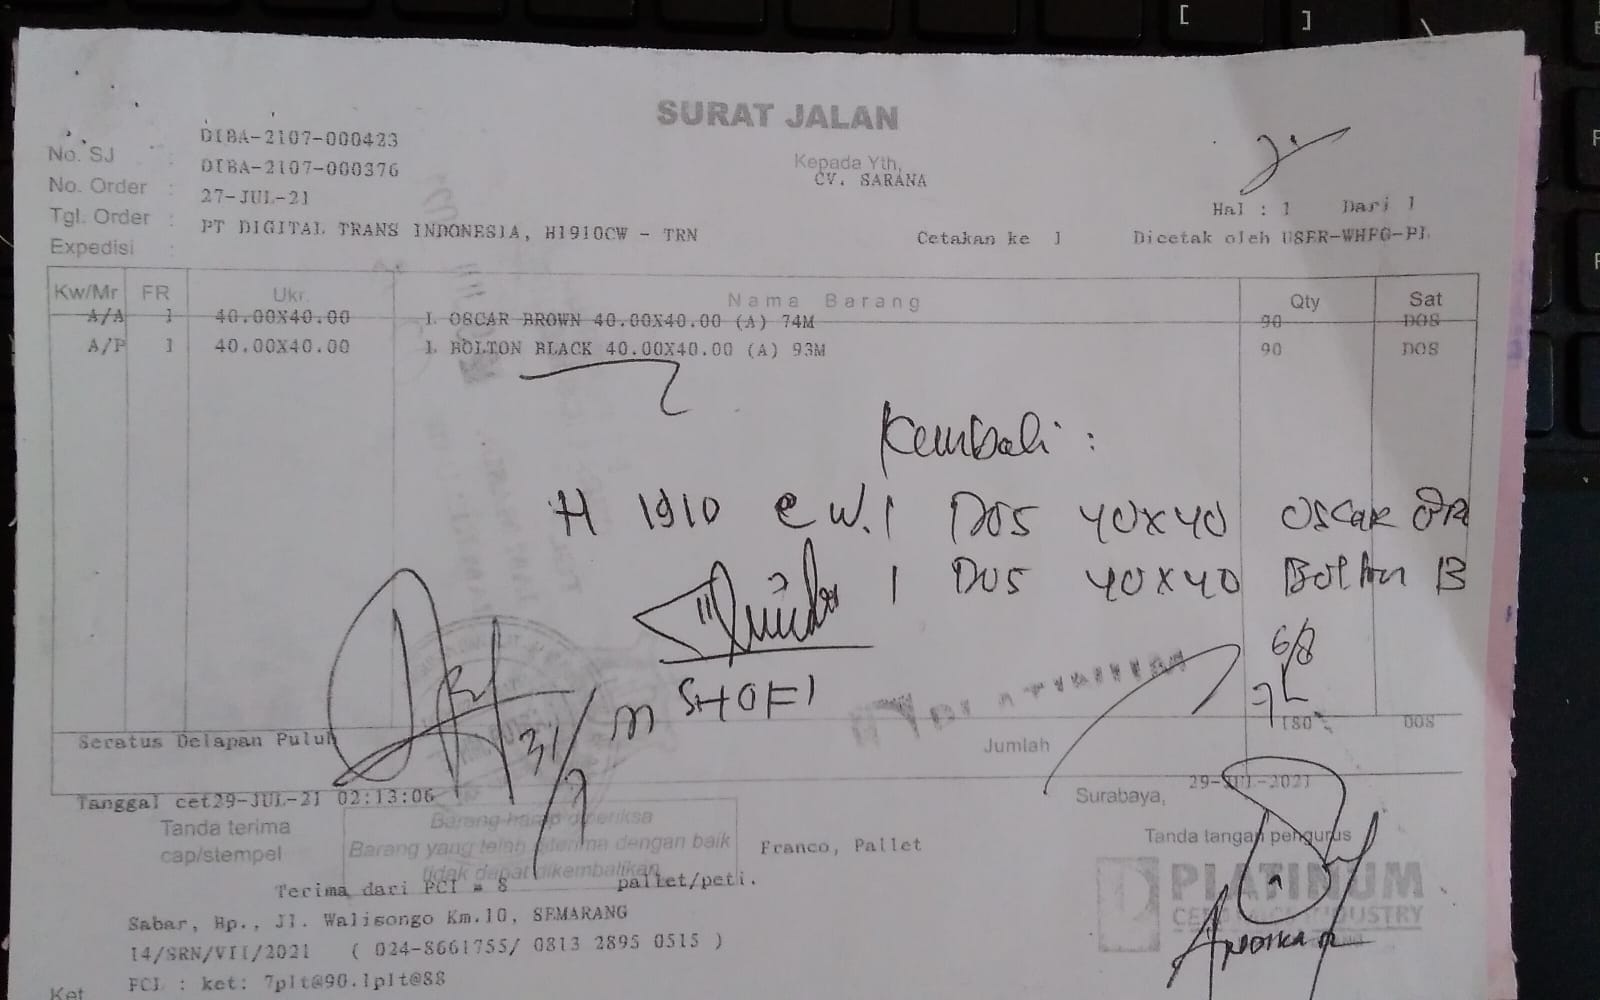 [ ]
SURAT JALAN
No. SJ : DIBA-2107-000423
No. Order : DIBA-2107-000376
Tgl. Order : 27-JUL-21
Expedisi : PT DIGITAL TRANS INDONESIA, H1910CW - TRN
Kepada Yth,
CV. SARANA
Hal : 1 Dari 1
Cetakan ke 1 Dicetak oleh USER-WHFG-PI
Kw/Mr FR Ukr. Nama Barang Qty Sat
A/A 1 40.00X40.00 1. OSCAR BROWN 40.00X40.00 (A) 74M 90 DOS
A/P 1 40.00X40.00 1. BOLTON BLACK 40.00X40.00 (A) 93M 90 DOS
Kembali :
H 1910 CW. 1 DOS 40X40 OSCAR BR
1 DUS 40X40 Bolton B
SHOFI
6/8
31/7
180 DOS
Seratus Delapan Puluh
Jumlah
Tanggal cet29-JUL-21 02:13:06
Surabaya, 29-JUL-2021
Tanda terima
cap/stempel
Barang harap diperiksa
Barang yang telah diterima dengan baik
tidak dapat dikembalikan
Franco, Pallet
Tanda tangan pengurus
Terima dari PCI = 8 pallet/peti.
PLATINUM
CERAMICS INDUSTRY
Sabar, Bp., Jl. Walisongo Km.10, SEMARANG
14/SRN/VII/2021 ( 024-8661755/ 0813 2895 0515 )
Ket FCL : ket: 7plt@90.1plt@88